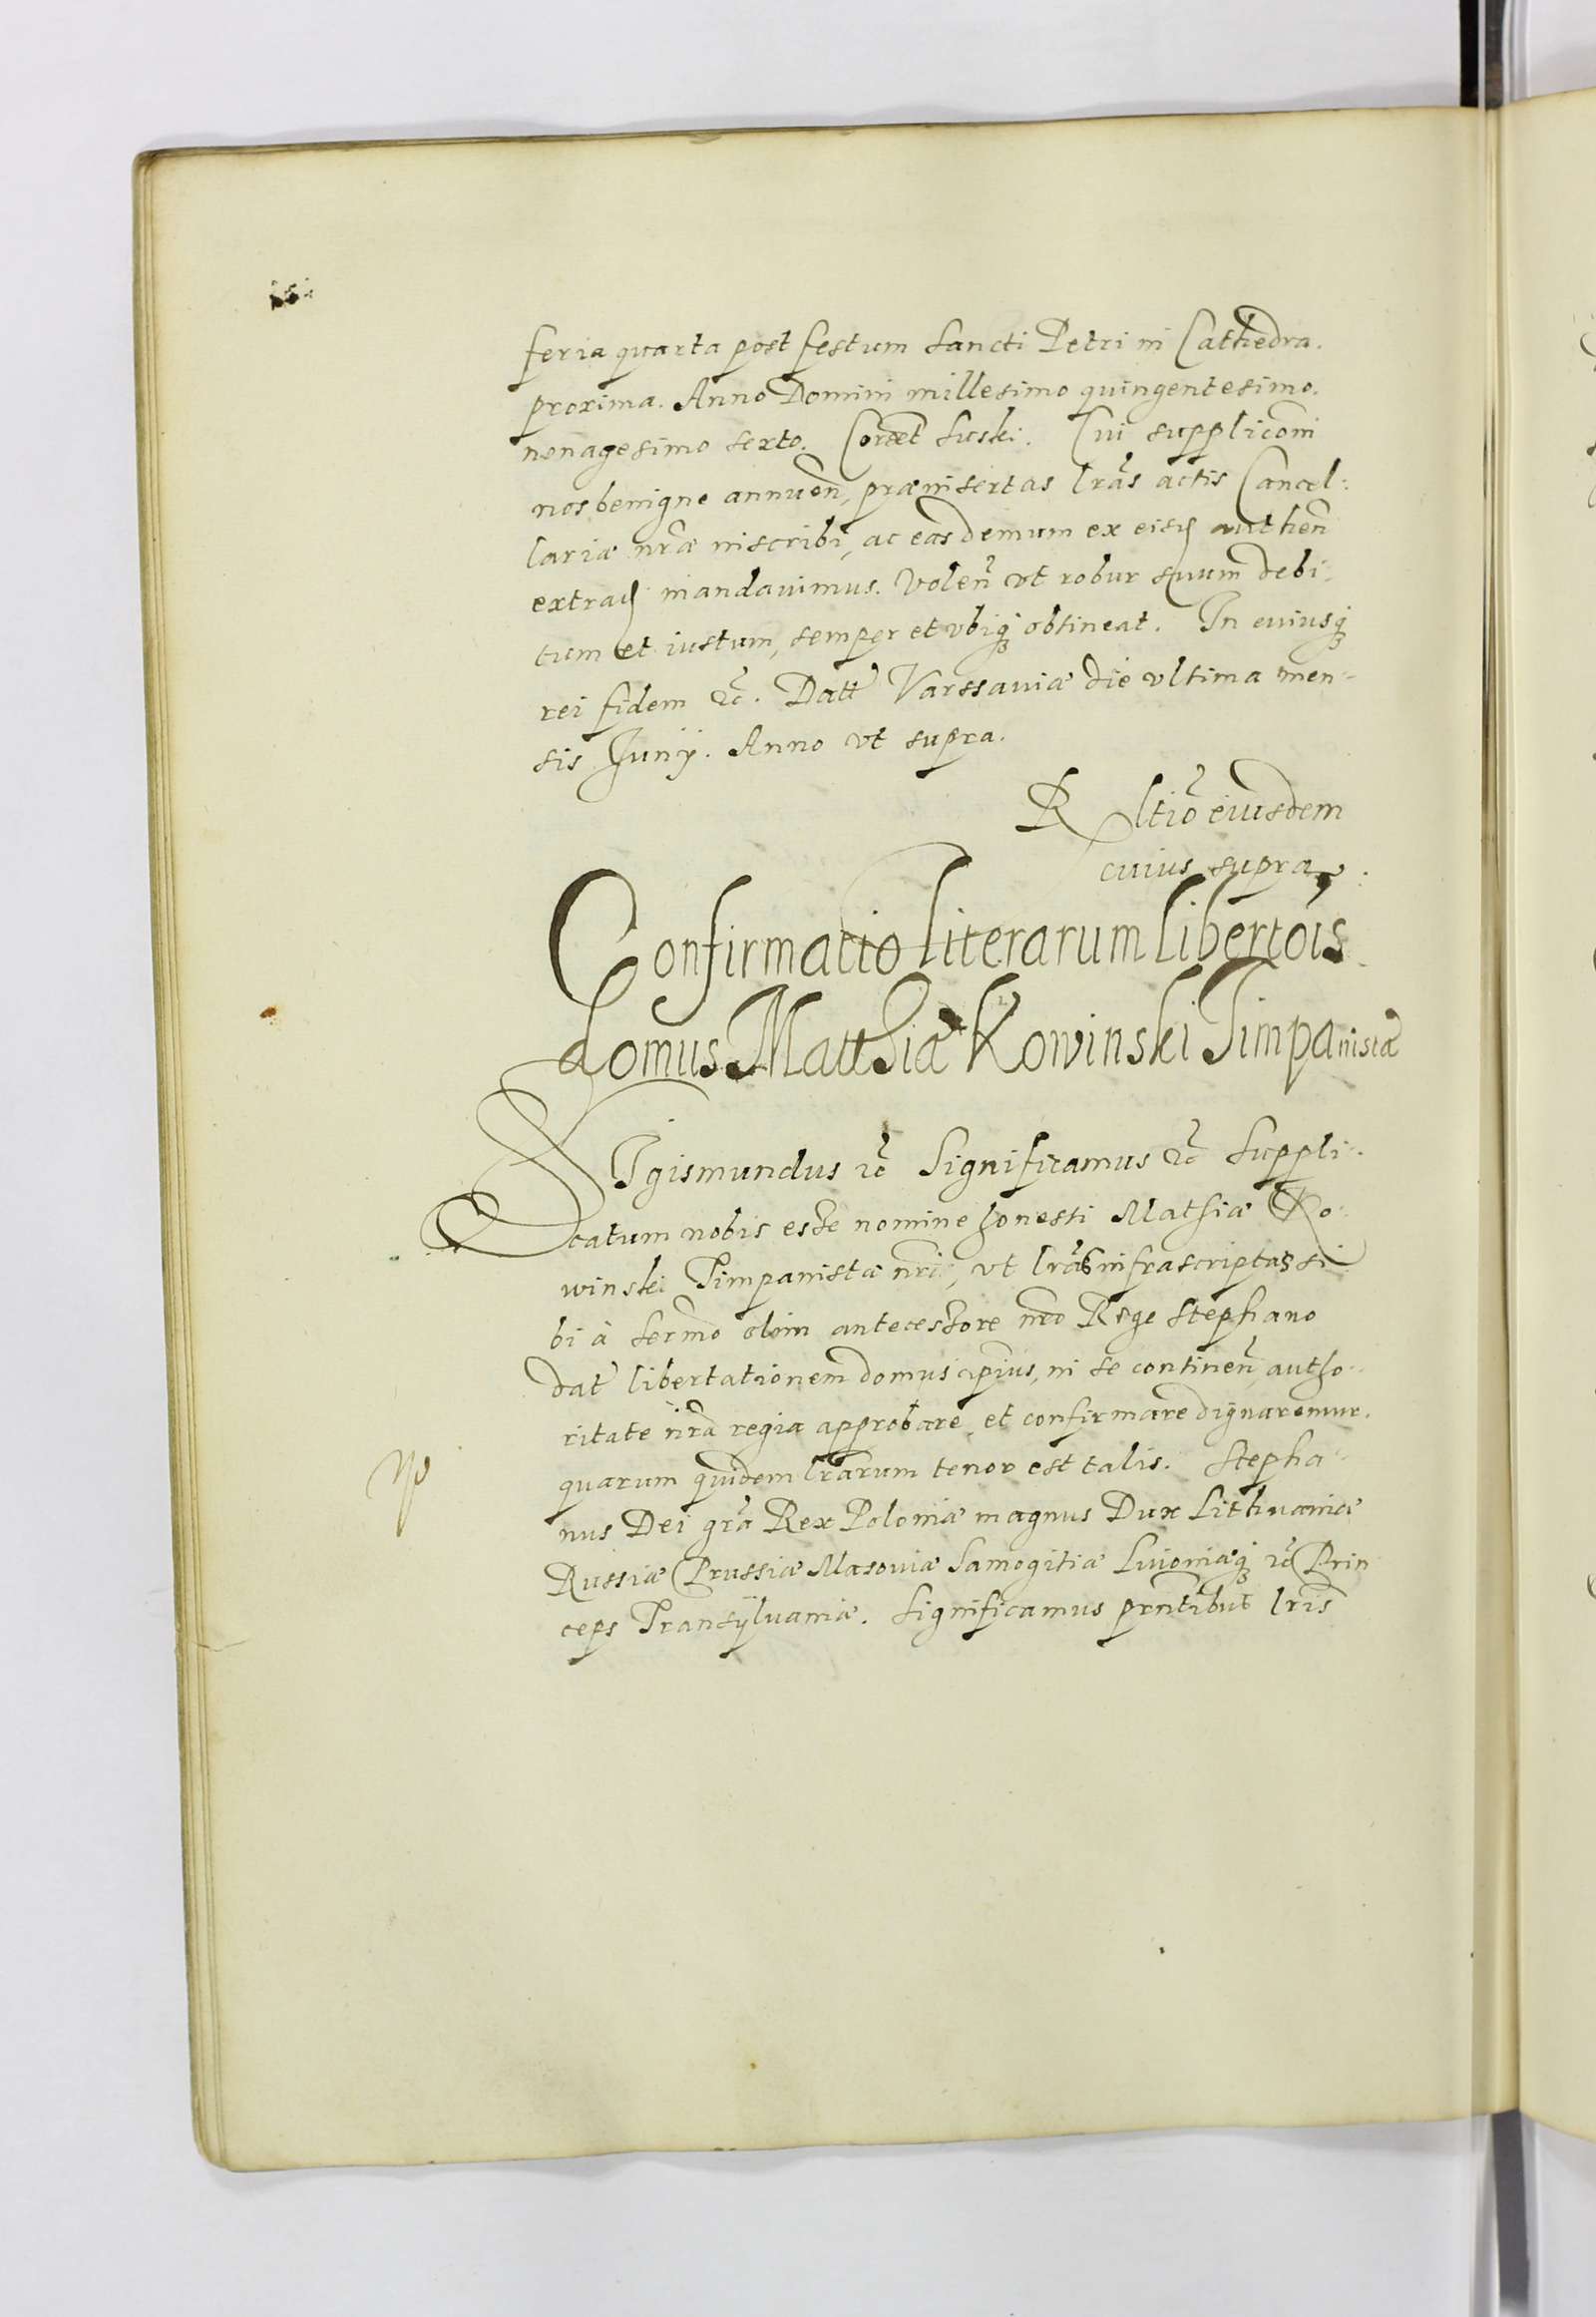 feria quarta post festum Sancti Petri in Cathedra.
proxima. Anno Domini millesimo quingentesimo.
nonagesimo sexto. Corexit Suski. Cui supplicōni
nos benigne annuen̄, præinsertas lrãs actis Cancel:
lariæ nrãe inscribi, ac eas demum ex eisd authen̄
extradi mandavimus. Volen̄ ut robur suum debi:
tum et iustum, semper et ubiq; obtineat. In cuiusq;
rei fidem &c. Datt Varssaviæ die ultima men-
sis Junij. Anno ut supra.
R ltiõ eiusdem
cuius supra.
Confirmatio literarum libertõis
domus Matthiæ Kowinski Timpanistæ
SIgismundus &c Significamus &c Suppli-
catum nobis esse nomine honesti Mathiæ Ko-
winski Timpanistæ nri, ut lrãs infrascriptas si
bi à Sermõ olim antecessore nrõ Rege Stephano
dat libertationem domus ipius, in se continen̄, autho-
ritate nrã regia approbare et confirmare dignaremur.
quarum quidem lrãrum tenor est talis. Stepha-
nus Dei grã Rex Poloniæ magnus Dux Lithuaniæ
Russiæ Prussiæ Masoviæ Samogitiæ Livoniæq; &c Prin
ceps Transÿlvaniæ. Significamus prñtibus lris